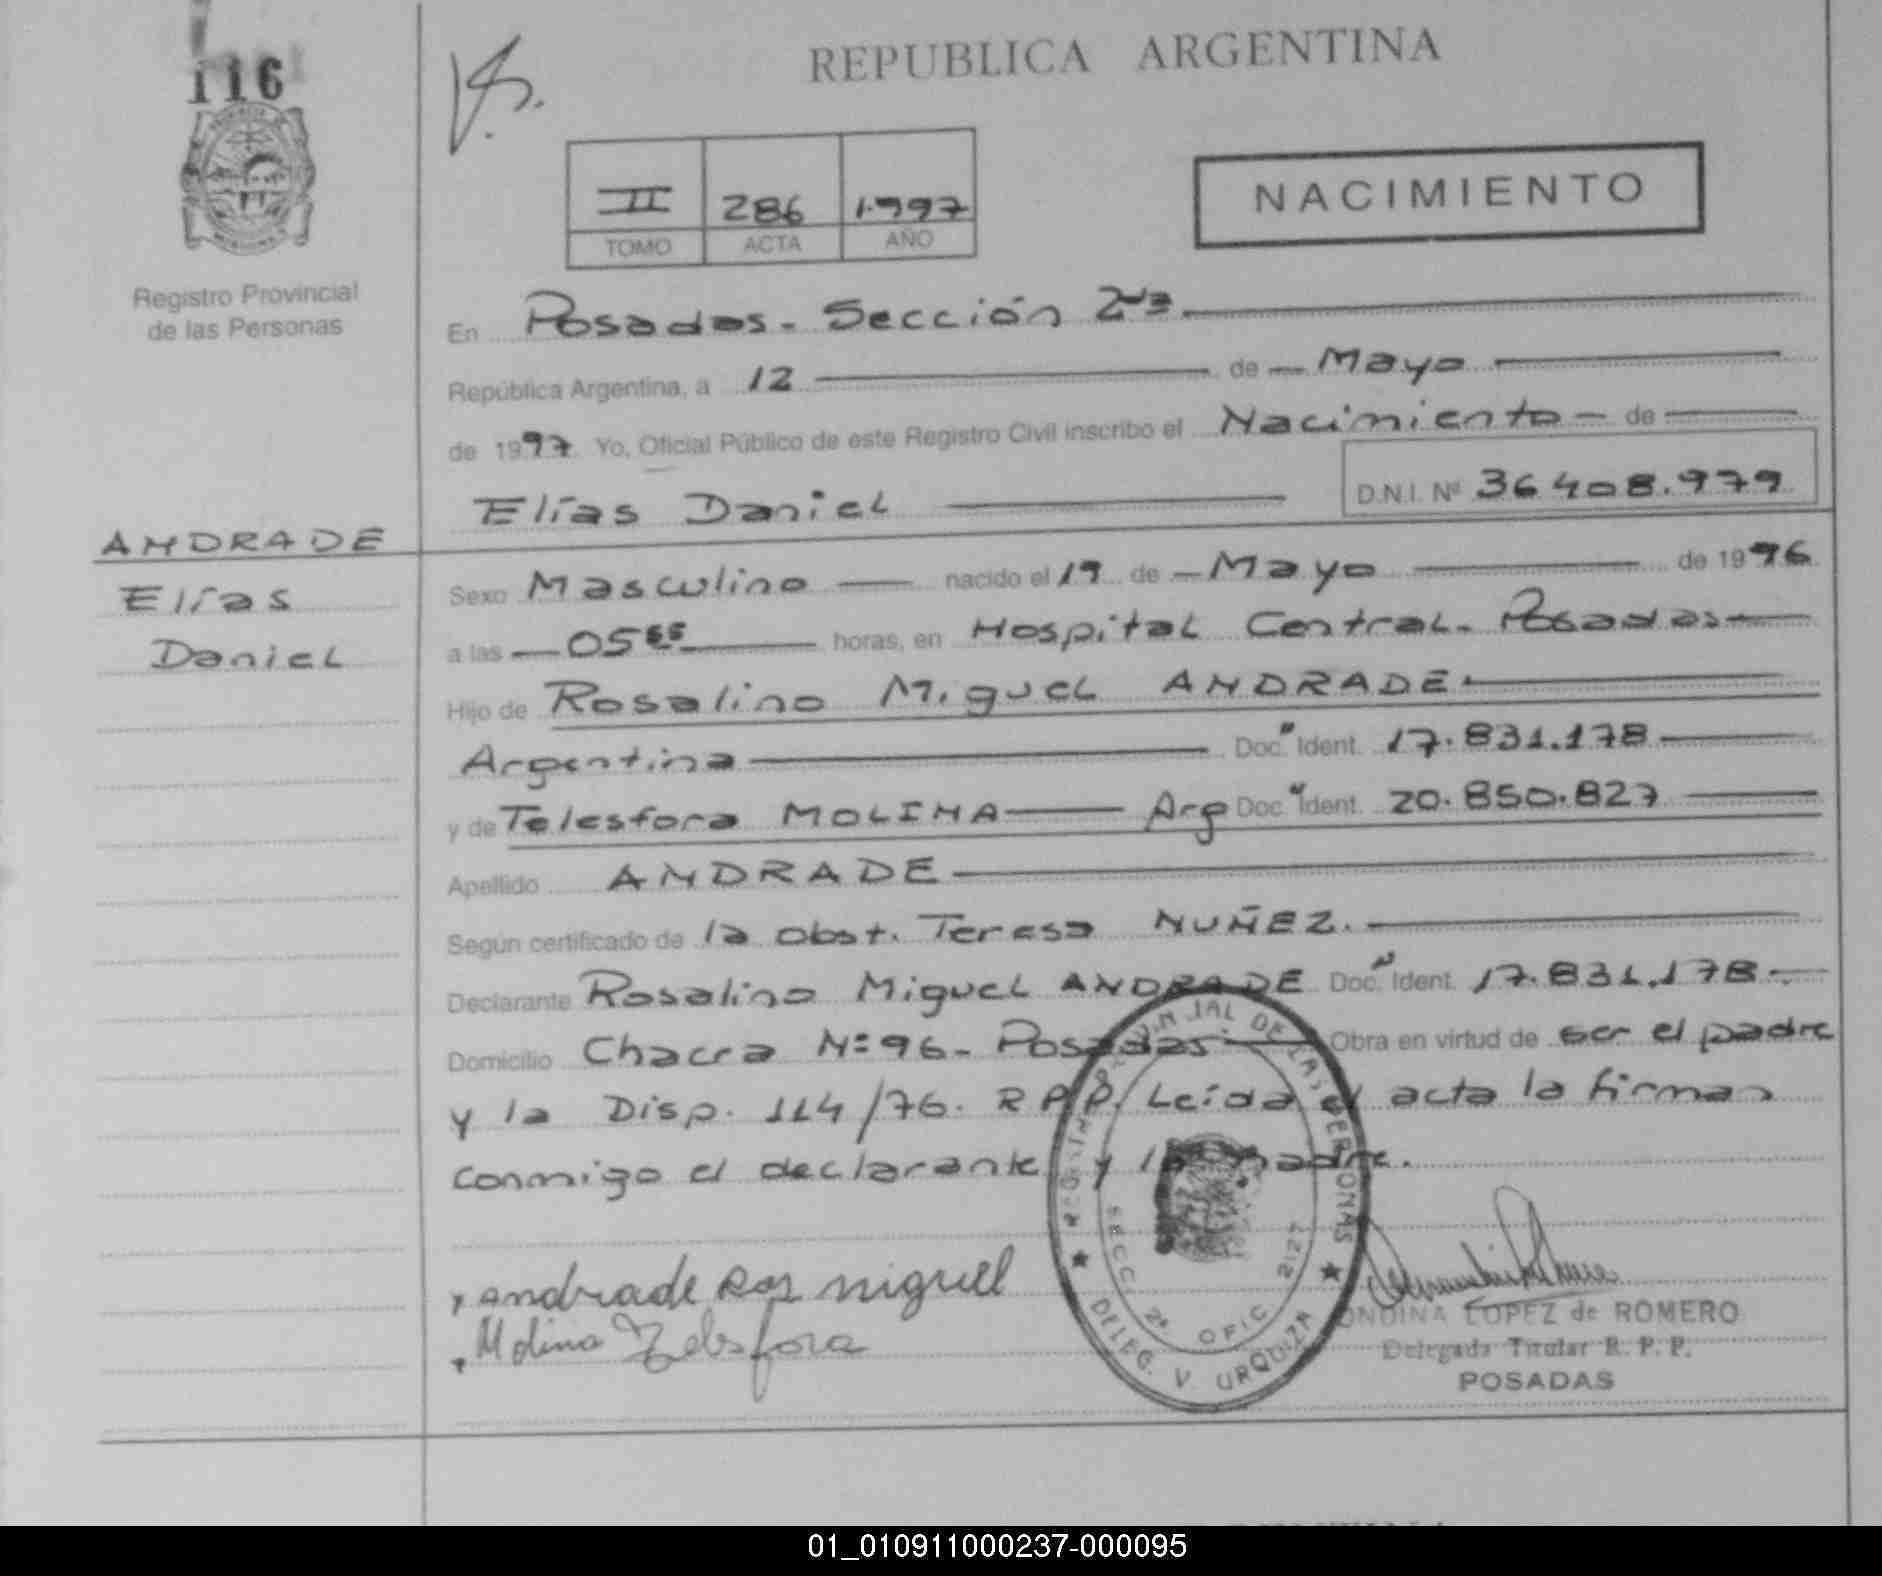 116
REPUBLICA ARGENTINA
II 286 1.997
TOMO ACTA AÑO
NACIMIENTO
Registro Provincial
de las Personas
En Posadas - Sección 2da
República Argentina, a 12 de Mayo
de 1997. Yo, Oficial Público de este Registro Civil inscribo el Nacimiento de
Elías Daniel D.N.I. Nº 36408.979
ANDRADE
Elías
Daniel
Sexo Masculino nacido el 19 de Mayo de 1996
a las 05 horas, en Hospital Central. Posadas
Hijo de Rosalino Miguel ANDRADE
Argentina Doc. Ident. 17.831.178
y de Telesfora MOLINA Arg Doc. Ident. 20.850.827
Apellido ANDRADE
Según certificado de la obst. Teresa NUÑEZ.
Declarante Rosalino Miguel ANDRADE Doc. Ident. 17.831.178.
Domicilio Chacra Nº 96 - Posadas Obra en virtud de ser el padre
y la Disp. 114/76. R.P.P. Leída el acta la firman
conmigo el declarante y la madre.
andrade Ros miguel
Molina Telesfora
REGISTRO PROVINCIAL DE LAS PERSONAS
SECC. 2ª OFIC 2127
DELEG. V. URQUIZA
ONDINA LOPEZ de ROMERO
Delegada Titular R. P. P.
POSADAS
01_010911000237-000095